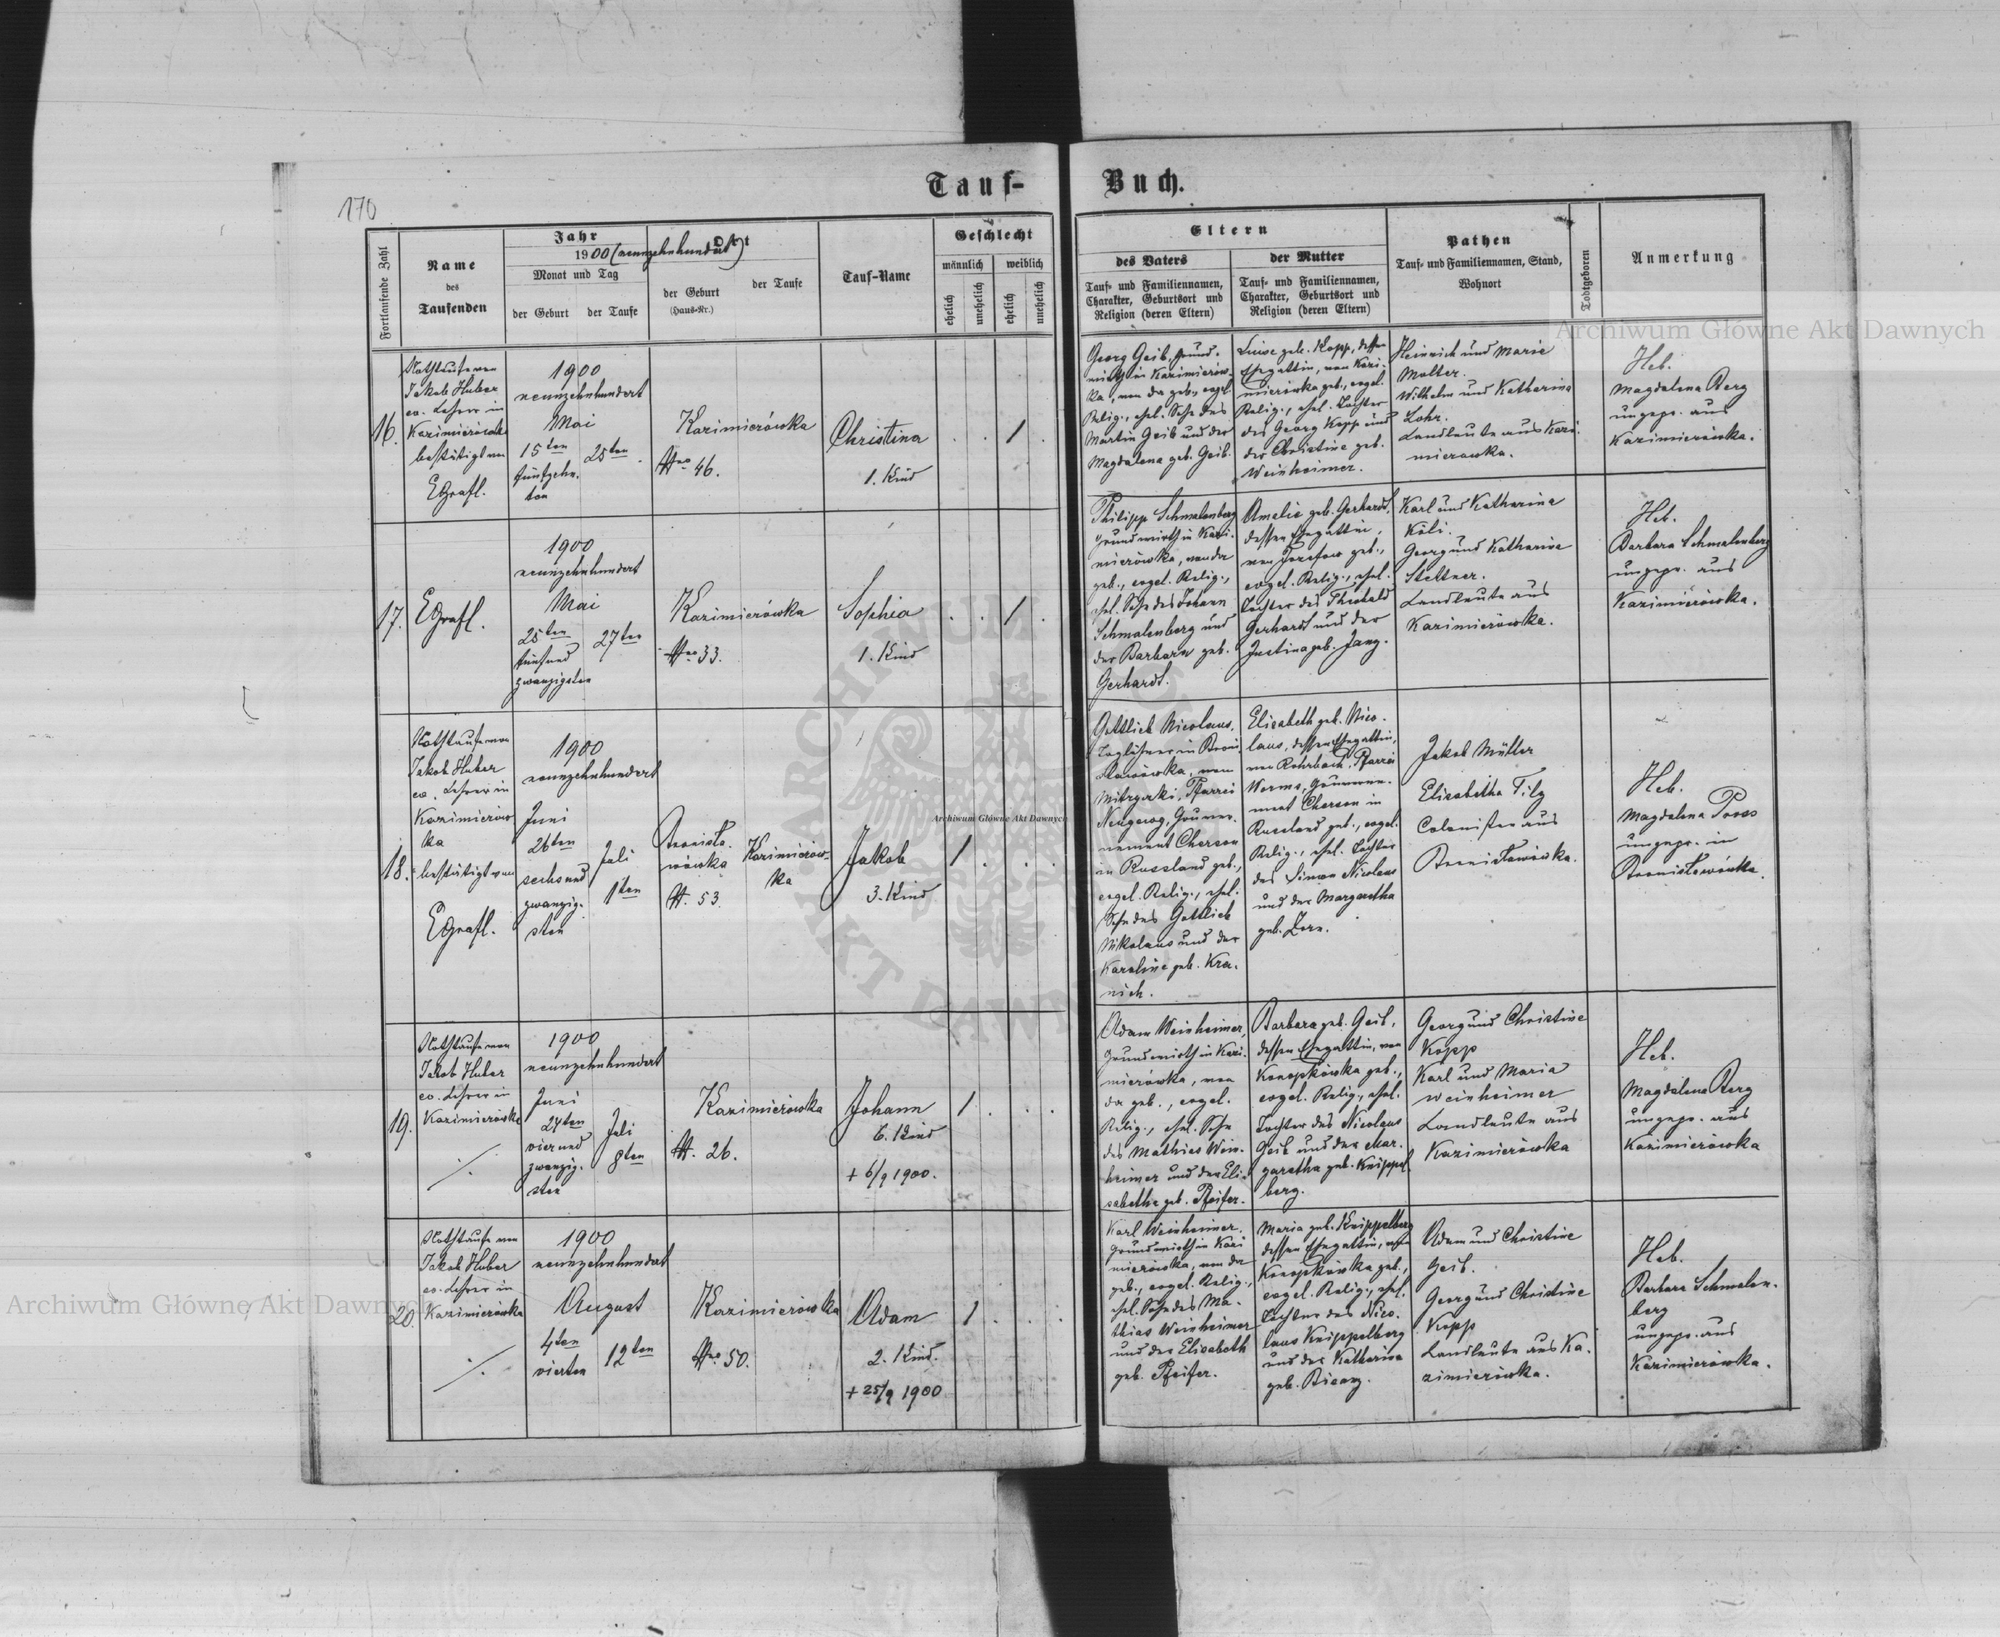 Tauf-
Buch.
170
Fortlaufende Zahl
Name
des
Taufenden
Jahr
1900 (neunzehnhundert)
Monat und Tag
der Geburt
der Taufe
Ort
der Geburt
(Haus-Nr.)
der Taufe
Tauf-Name
Geschlecht
männlich
weiblich
ehelich
unehelich
ehelich
unehelich
Eltern
des Vaters
Tauf- und Familiennamen,
Charakter, Geburtsort und
Religion (deren Eltern)
der Mutter
Tauf- und Familiennamen,
Charakter, Geburtsort und
Religion (deren Eltern)
Pathen
Tauf- und Familiennamen, Stand,
Wohnort
Todtgeboren
Anmerkung
16.
Nothtaufe von
Jakob Huber
ev. Lehrer in
Kazimierówka
bestätigt von
EGrafl.
1900
neunzehnhundert
Mai
15ten
fünfzehn-
ten
25ten
Kazimierówka
Nro 46.
Christina
1. Kind
1
Georg Geib, Grund-
wirth in Kazimierów-
ka, von da geb., evgl.
Relig., ehel. Sohn des
Martin Geib und der
Magdalena geb. Geib.
Luise geb. Kopp, dessen
Ehegattin, von Kazi-
mierówka geb., evgel.
Relig., ehel. Tochter
des Georg Kopp und
der Christine geb.
Weinheimer.
Heinrich und Marie
Molter.
Wilhelm und Katharina
Lohr.
Landleute aus Kazi-
mierowka.
Heb.
Magdalena Berg
ungepr. aus
Kazimierówka.
17.
EGrafl.
1900
neunzehnhundert
Mai
25ten
fünfund
zwanzigsten
27ten
Kazimierówka
Nro 33.
Sophia
1. Kind
1
Philipp Schmalenberg
Grundwirth in Kazi-
mierówka, von da
geb., evgel. Relig.,
ehel. Sohn des Johann
Schmalenberg und
der Barbara geb.
Gerhardt.
Amalie geb. Gerhardt,
dessen Ehegattin,
von Josefow geb.,
evgel. Relig., ehel.
Tochter des Theobald
Gerhardt und der
Justina geb. Jang.
Karl und Katharina
Köli.
Georg und Katharina
Stettner.
Landleute aus
Kazimierówka.
Heb.
Barbara Schmalenberg
ungepr. aus
Kazimierówka.
18.
Nothtaufe von
Jakob Huber
ev. Lehrer in
Kazimierów-
ka
bestätigt von
EGrafl.
1900
neunzehnhundert
Juni
26ten
sechsund
zwanzig-
sten
Juli
1ten
Bronisła-
wówka
N. 53.
Kazimierów-
ka
Jakob
3. Kind
1
Gottlieb Nicolaus,
Taglöhner in Broni
sławówka, von
Pfarrei
Gouver-
nement Cherson
in Russland geb.,
evgel. Relig., ehel.
Sohn des Gottlieb
Nikolaus und der
Karoline geb. Kra-
nich.
Elisabeth geb. Nico-
laus, dessen Ehegattin,
von Rohrbach, Pfarrei
Worms, Gouverne-
ment Cherson in
Russland geb., evgel.
Relig., ehel. Tochter
des Simon Nicolaus
und der Margaretha
geb. Zorn.
Jakob Müller
Elisabetha Filg
Colonisten aus
Bronisławówka.
Heb.
Magdalena Pooss
ungepr. in
Bronisławówka.
19.
Nothtaufe von
Jakob Huber
ev. Lehrer in
Kazimierówka
1900
neunzehnhundert
Juni
24ten
vierund
zwanzig-
sten
Juli
8ten
Kazimierówka
N. 26.
Johann
6. Kind
+ 6/9 1900.
1
Adam Weinheimer
Grundwirth in Kazi-
mierówka, von
da geb., evgel.
Relig., ehel. Sohn
des Mathias Wein-
heimer und der Eli-
sabetha geb. Pfeifer.
Barbara geb. Geib,
dessen Ehegattin, von
Konopkówka geb.,
evgel. Relig., ehel.
Tochter des Nicolaus
Geib und der Mar-
garetha geb. Knippel
berg.
Georg und Christine
Kopp
Karl und Maria
Weinheimer
Landleute aus
Kazimierówka
Heb.
Magdalena Berg
ungepr. aus
Kazimierówka
20.
Nothtaufe von
Jakob Huber
ev. Lehrer in
Kazimierówka
1900
neunzehnhundert
August
4ten
vierten
12ten
Kazimierówka
Nro 50.
Adam
2. Kind.
+ 25/9 1900
1
Karl Weinheimer,
Grundwirth in Kazi
mierówka, von da
geb., evgel. Relig.,
ehel. Sohn des Ma-
thias Weinheimer
und der Elisabeth
geb. Pfeifer.
Maria geb. Knippelberg
dessen Ehegattin, von
Konopkówka geb.,
evgel. Relig., ehel.
Tochter des Nico-
laus Knippelberg
und der Katharina
geb.
Adam und Christine
Geib.
Georg und Christine
Kopp
Landleute aus Ka-
zimierówka.
Heb.
Barbara Schmalen-
berg
ungepr. aus
Kazimierówka.
Archiwum Główne Akt Dawnych
Archiwum Główne Akt Dawnych
Archiwum Główne Akt Dawnych